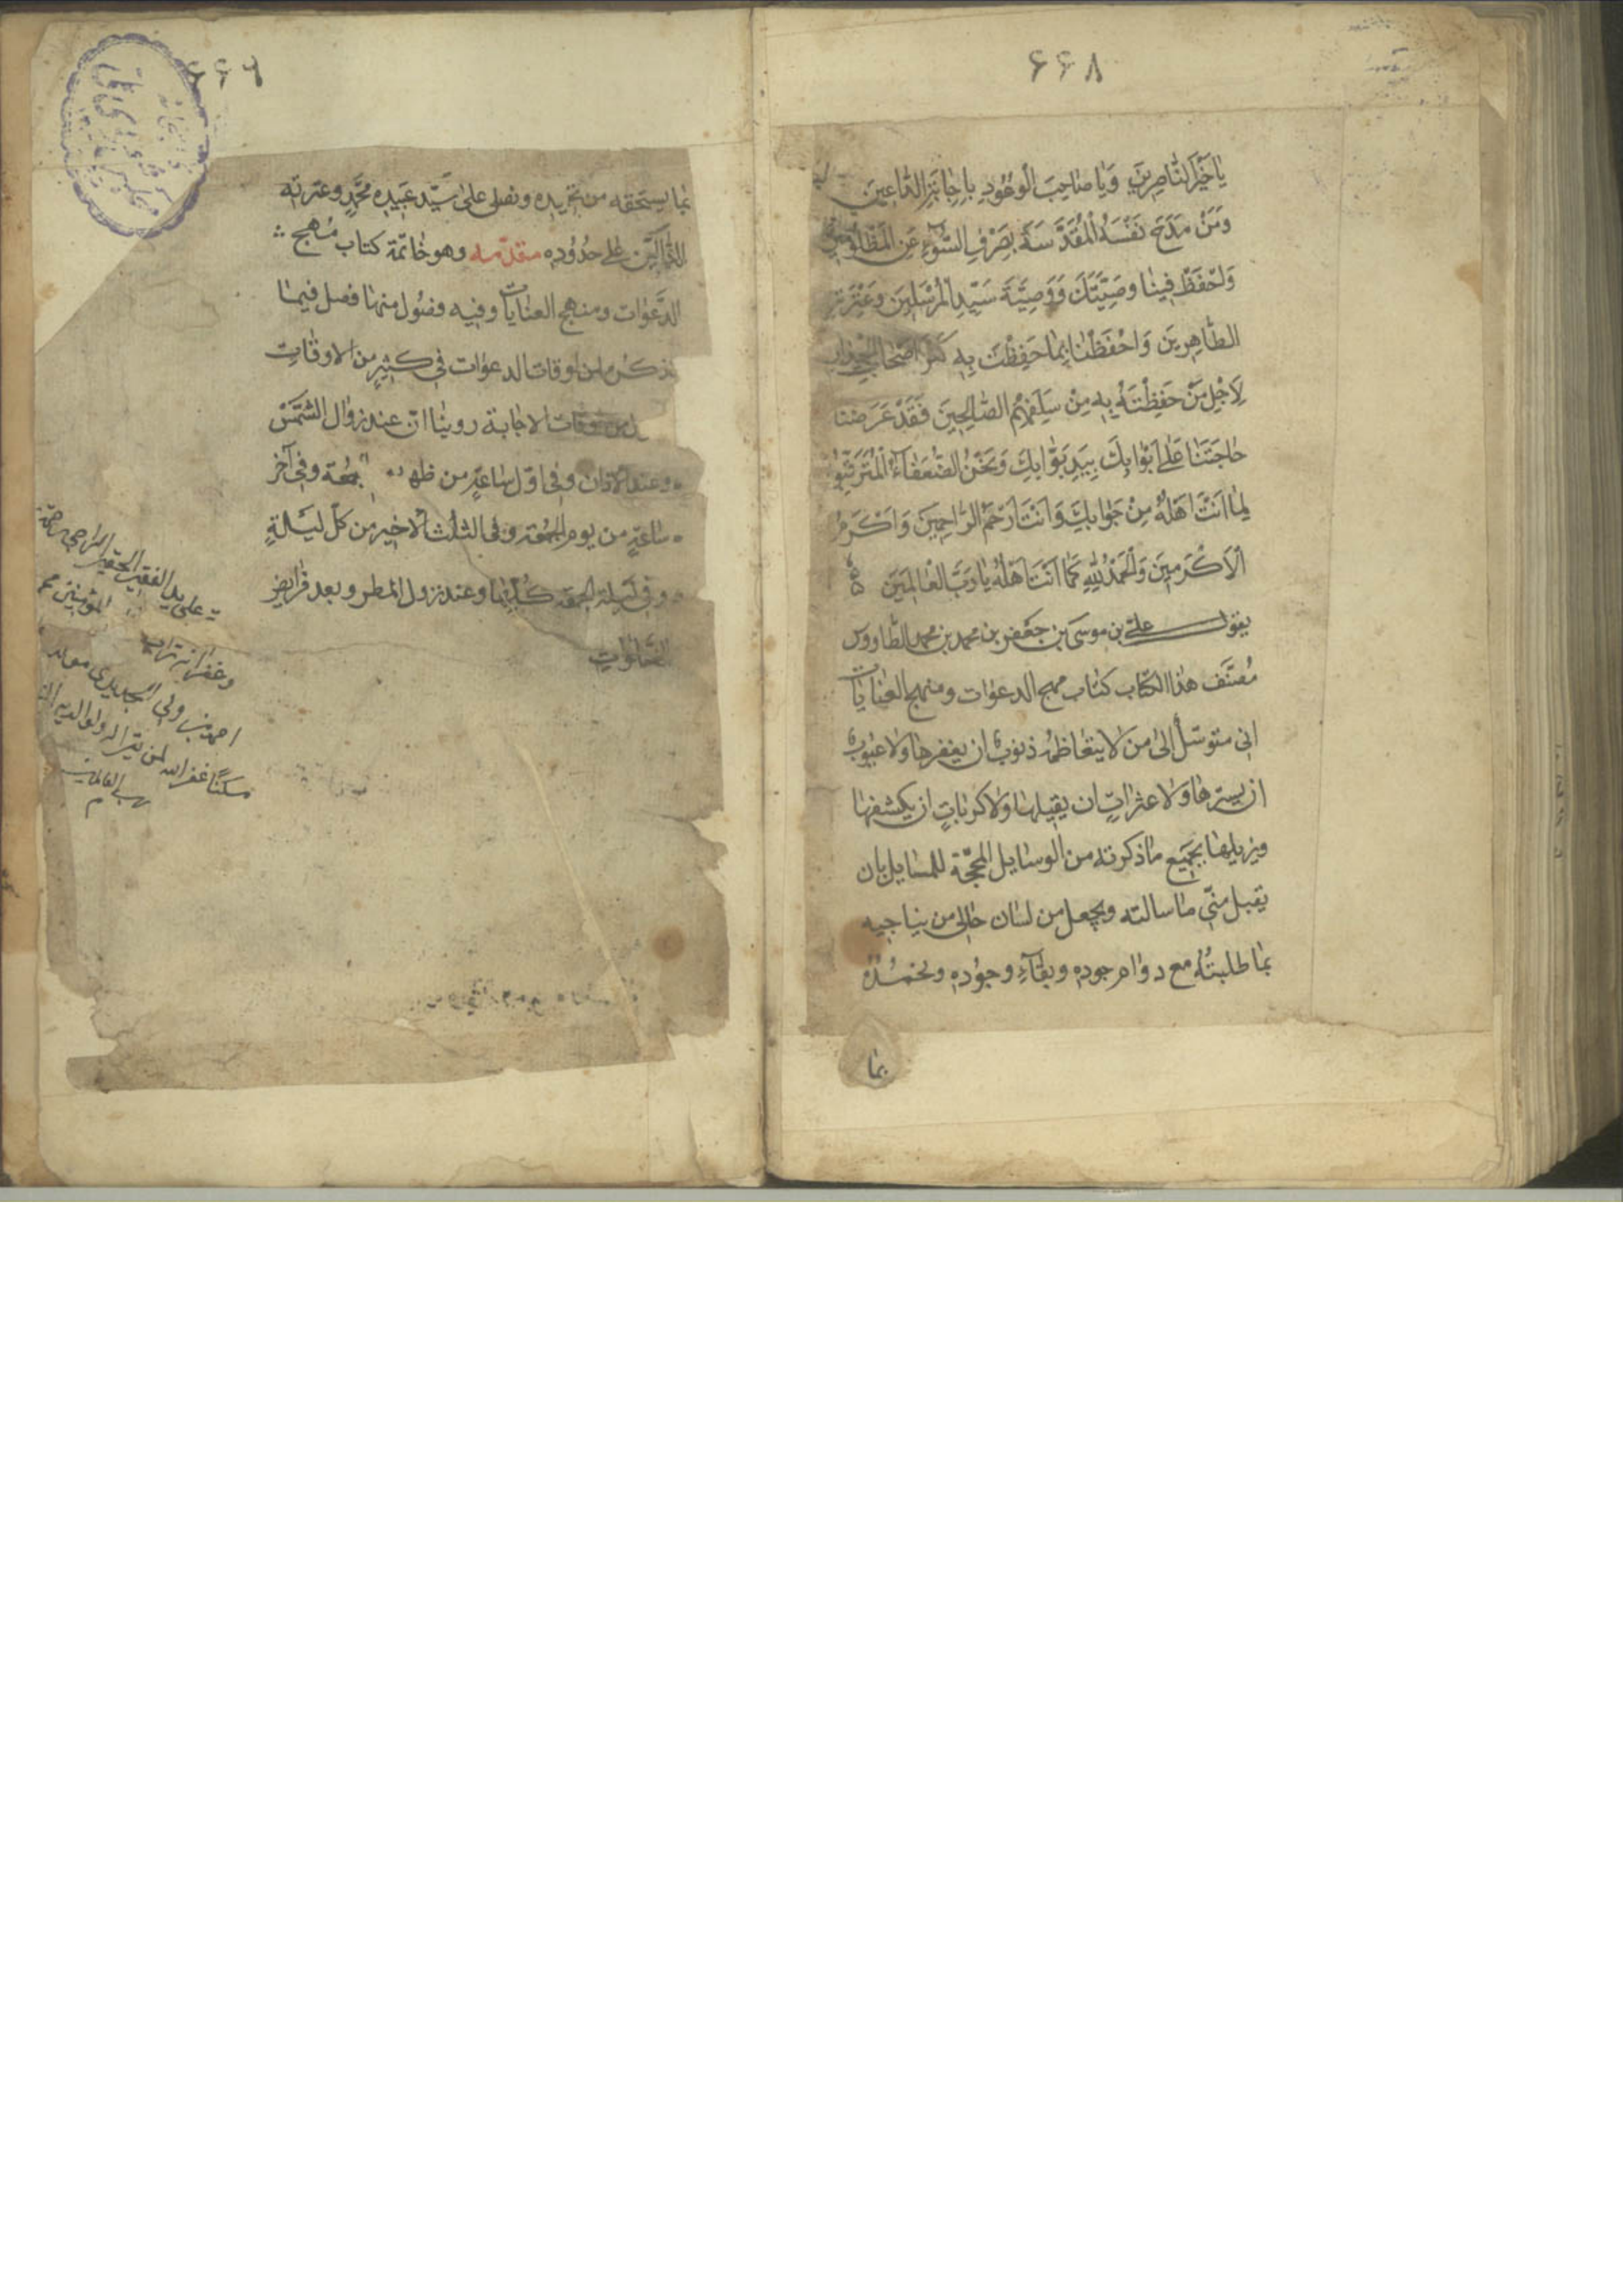 ۶۶۸
يَا خَيْرَ النَّاصِرِينَ وَيَا صَاحِبَ الْوعُودِ بِاِجَابَةِ الدَّاعِينَ
وَمَنْ مَدَحَ نَفْسَهُ الْمُقَدَّسَةَ بِصَرْفِ السُّوۤءِ عَنِ الْمَظْلُومِينَ
وَاحْفَظْ فِينَا وصَيَّتَكَ وَوَصِيَّةَ سَيِّدِ الْمُرْسَلِينَ وَعِتْرَتِهِ
الطَّاهِرِينَ وَاحْفَظْنَا بِمَا حَفِظْتَ بِهِ كَنْزَ اَصْحَابِ الْجِدَارِ
لِاَجْلِ مَنْ حَفِظْتَهُ بِهِ مِنْ سَلَفِهِمُ الصَّالِحِينَ فَقَدْ عَرَضْنَا
حَاجَتَنَا عَلَى اَبْوَابِكَ بِيَدِ بَوَّابِكَ وَنَحْنُ الضُّعَفَاۤءُ الْمُتَرَقِّبُونَ
لِمَا اَنْتَ اَهْلُهُ مِنْ جَوَابِكَ وَاَنْتَ اَرْحَمُ الرَّاحِمِينَ وَاَكْرَمُ
الْاَكْرَمِينَ وَالْحَمْدُ لِلّٰهِ كَمَا اَنْتَ اَهْلُهُ يَا رَبَّ الْعَالَمِينَ
يقول علىّ بن موسى بن جعفر بن محمد بن محمد الطاووس
مُصَنِّف هذا الكتاب كتاب مهج الدعوات ومنهج العنايات
انى متوسّل الىٰ من لا يتعاظمه ذنوب ان يغفرها ولا عيوب
ان يسترها ولا عثرات ان يقيلها ولا كربات ان يكشفها
ويزيلها بجميع ما ذكرته من الوسايل المحجّة للمسايل بان
يقبل منّى ما سالته ويجعل من لسان حالى من يناجيه
بما طلبتُه مع دوام جوده وبقاۤء وجوده ونحمدُهُ
بما
۶۶۹
بما يستحقه من تحميده ونصلى على سيّد عبيده محمّدٍ وعترته
الدّالّين على حُدُوده مقدّمه وهو خاتمة كتاب مهج
الدَّعوات ومنهج العنايات وفيه فصُول منها فصل فيما
نذكره من اوقات الدعوات فى كثيرٍ من الاوقات
اوقات الاجابة روينا انّ عند زوال الشَّمْسُ
وعند الاذان وفى اوّل ساعةٍ من ظهر الجمعة وفى آخر
ساعةٍ من يوم الجُمعة وفى الثلث الاخير من كلّ ليلةٍ
وفى ليلة الجمعة كلّها وعند نزول المطر وبعد فرايض
الصَّلوات
على يد الفقير الحقير الراجى رحمة
وغفرانه تراب المؤمنين
احمد بن ولى
مسكنًا غفر الله لمن يقرا له ولوالديه
رب العالمين
م